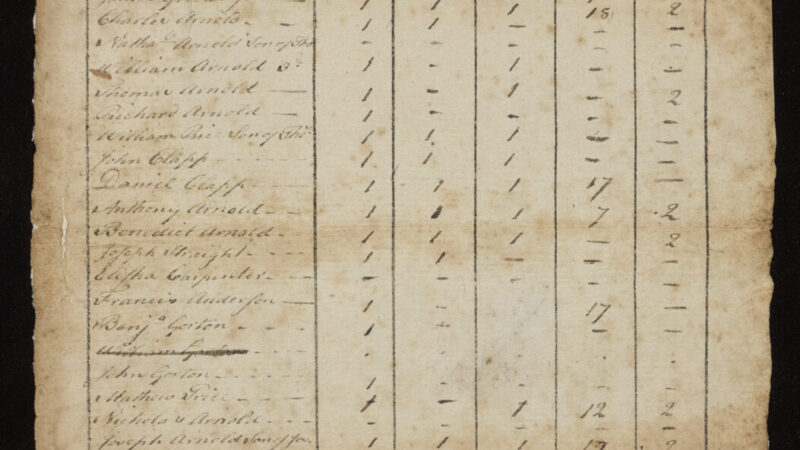 1 1 1 18 2
Charles Arnold — 1 1 —
Nathaⁿ Arnold Son of Tho — — — — —
William Arnold 3ᵈ 1 - 1 — —
Thomas Arnold — 1 - 1 - 2
Richard Arnold — 1 - - - —
William Son of Thoˢ 1 1 1 — —
John Clapp - - - - 1 1 1 — —
Daniel Clapp - - - 1 1 1 17 —
Anthony Arnold - - 1 1 1 7 2
Benedict Arnold - 1 1 1 — 2
Joseph Straight - - 1 1 — — —
Elisha Carpenter - - - - - - —
Francis Anderson — 1 - 17 —
Benjᵃ Gorton - - 1 - — —
John Gorton - - - -
Mathew Price - - - 1 - 1 12 2
Nicholas Arnold - - - - - - -
Joseph Arnold Son of Jos. 1 1 1 2